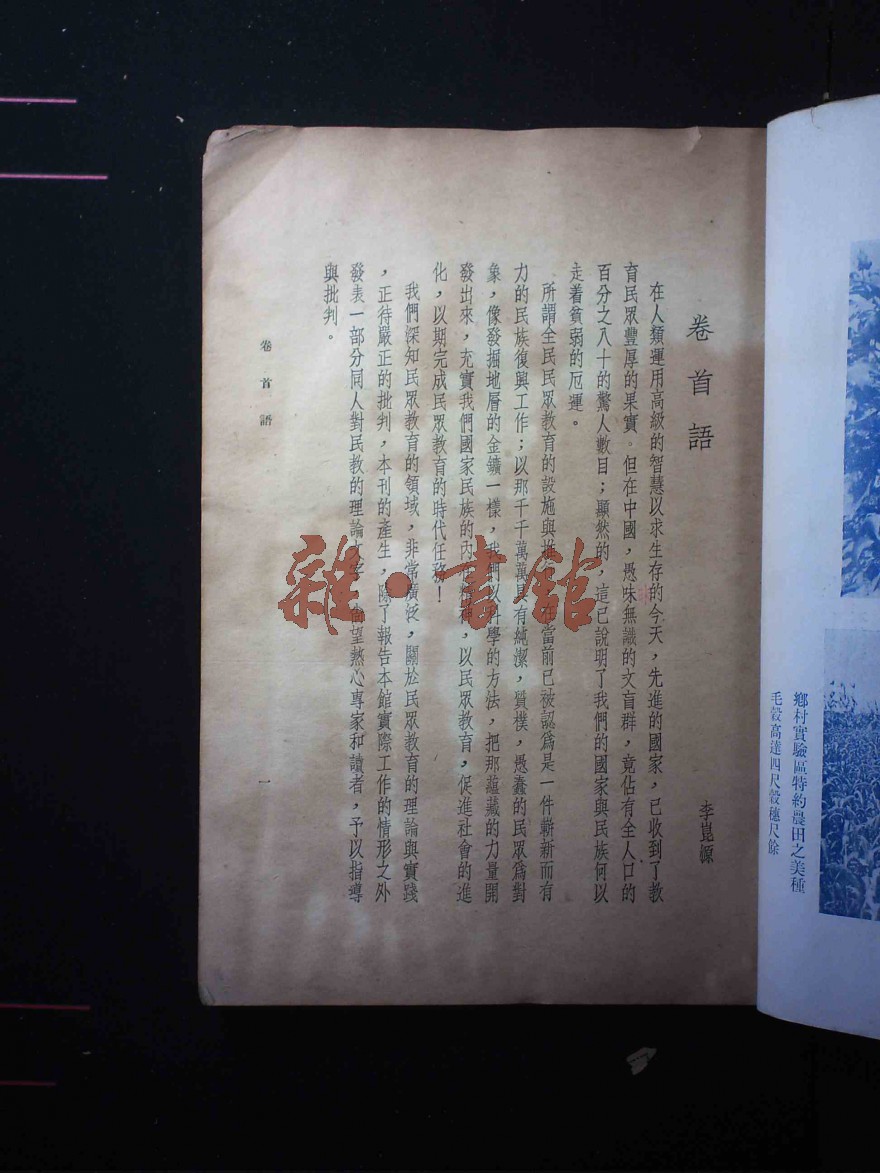 鄉村實驗區特約農田之美種
毛穀高達四尺穀穗尺餘
卷首語
李崑源
在人類運用高級的智慧以求生存的今天，先進的國家，已收到了教
育民眾豐厚的果實。但在中國，愚味無識的文盲群，竟佔有全人口的
百分之八十的驚人數目；顯然的，這已說明了我們的國家與民族何以
走着貧弱的厄運。
所謂全民民眾教育的設施與推 在當前已被認爲是一件嶄新而有
力的民族復興工作；以那千千萬萬具有純潔，質樸，愚蠢的民眾爲對
象，像發掘地層的金鑛一樣，我們以科學的方法，把那蘊藏的力量開
發出來，充實我們國家民族的內 ，以民眾教育，促進社會的進
化，以期完成民眾教育的時代任務！
我們深知民眾教育的領域，非常廣泛，關於民眾教育的理論與實踐
，正待嚴正的批判，本刊的產生，除了報告本館實際工作的情形之外
發表一部分同人對民教的理論文字 望熱心專家和讀者，予以指導
與批判。
卷首語
一
雜·書館